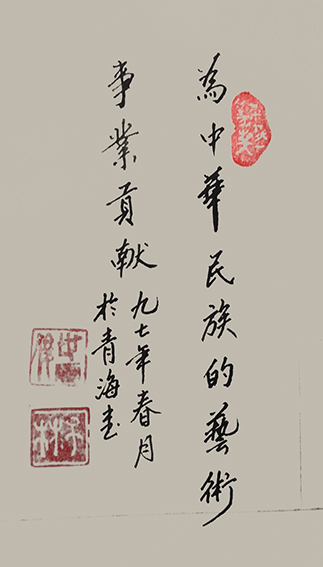 為中華民族的藝術
事業貢献
九七年春月
於青海書